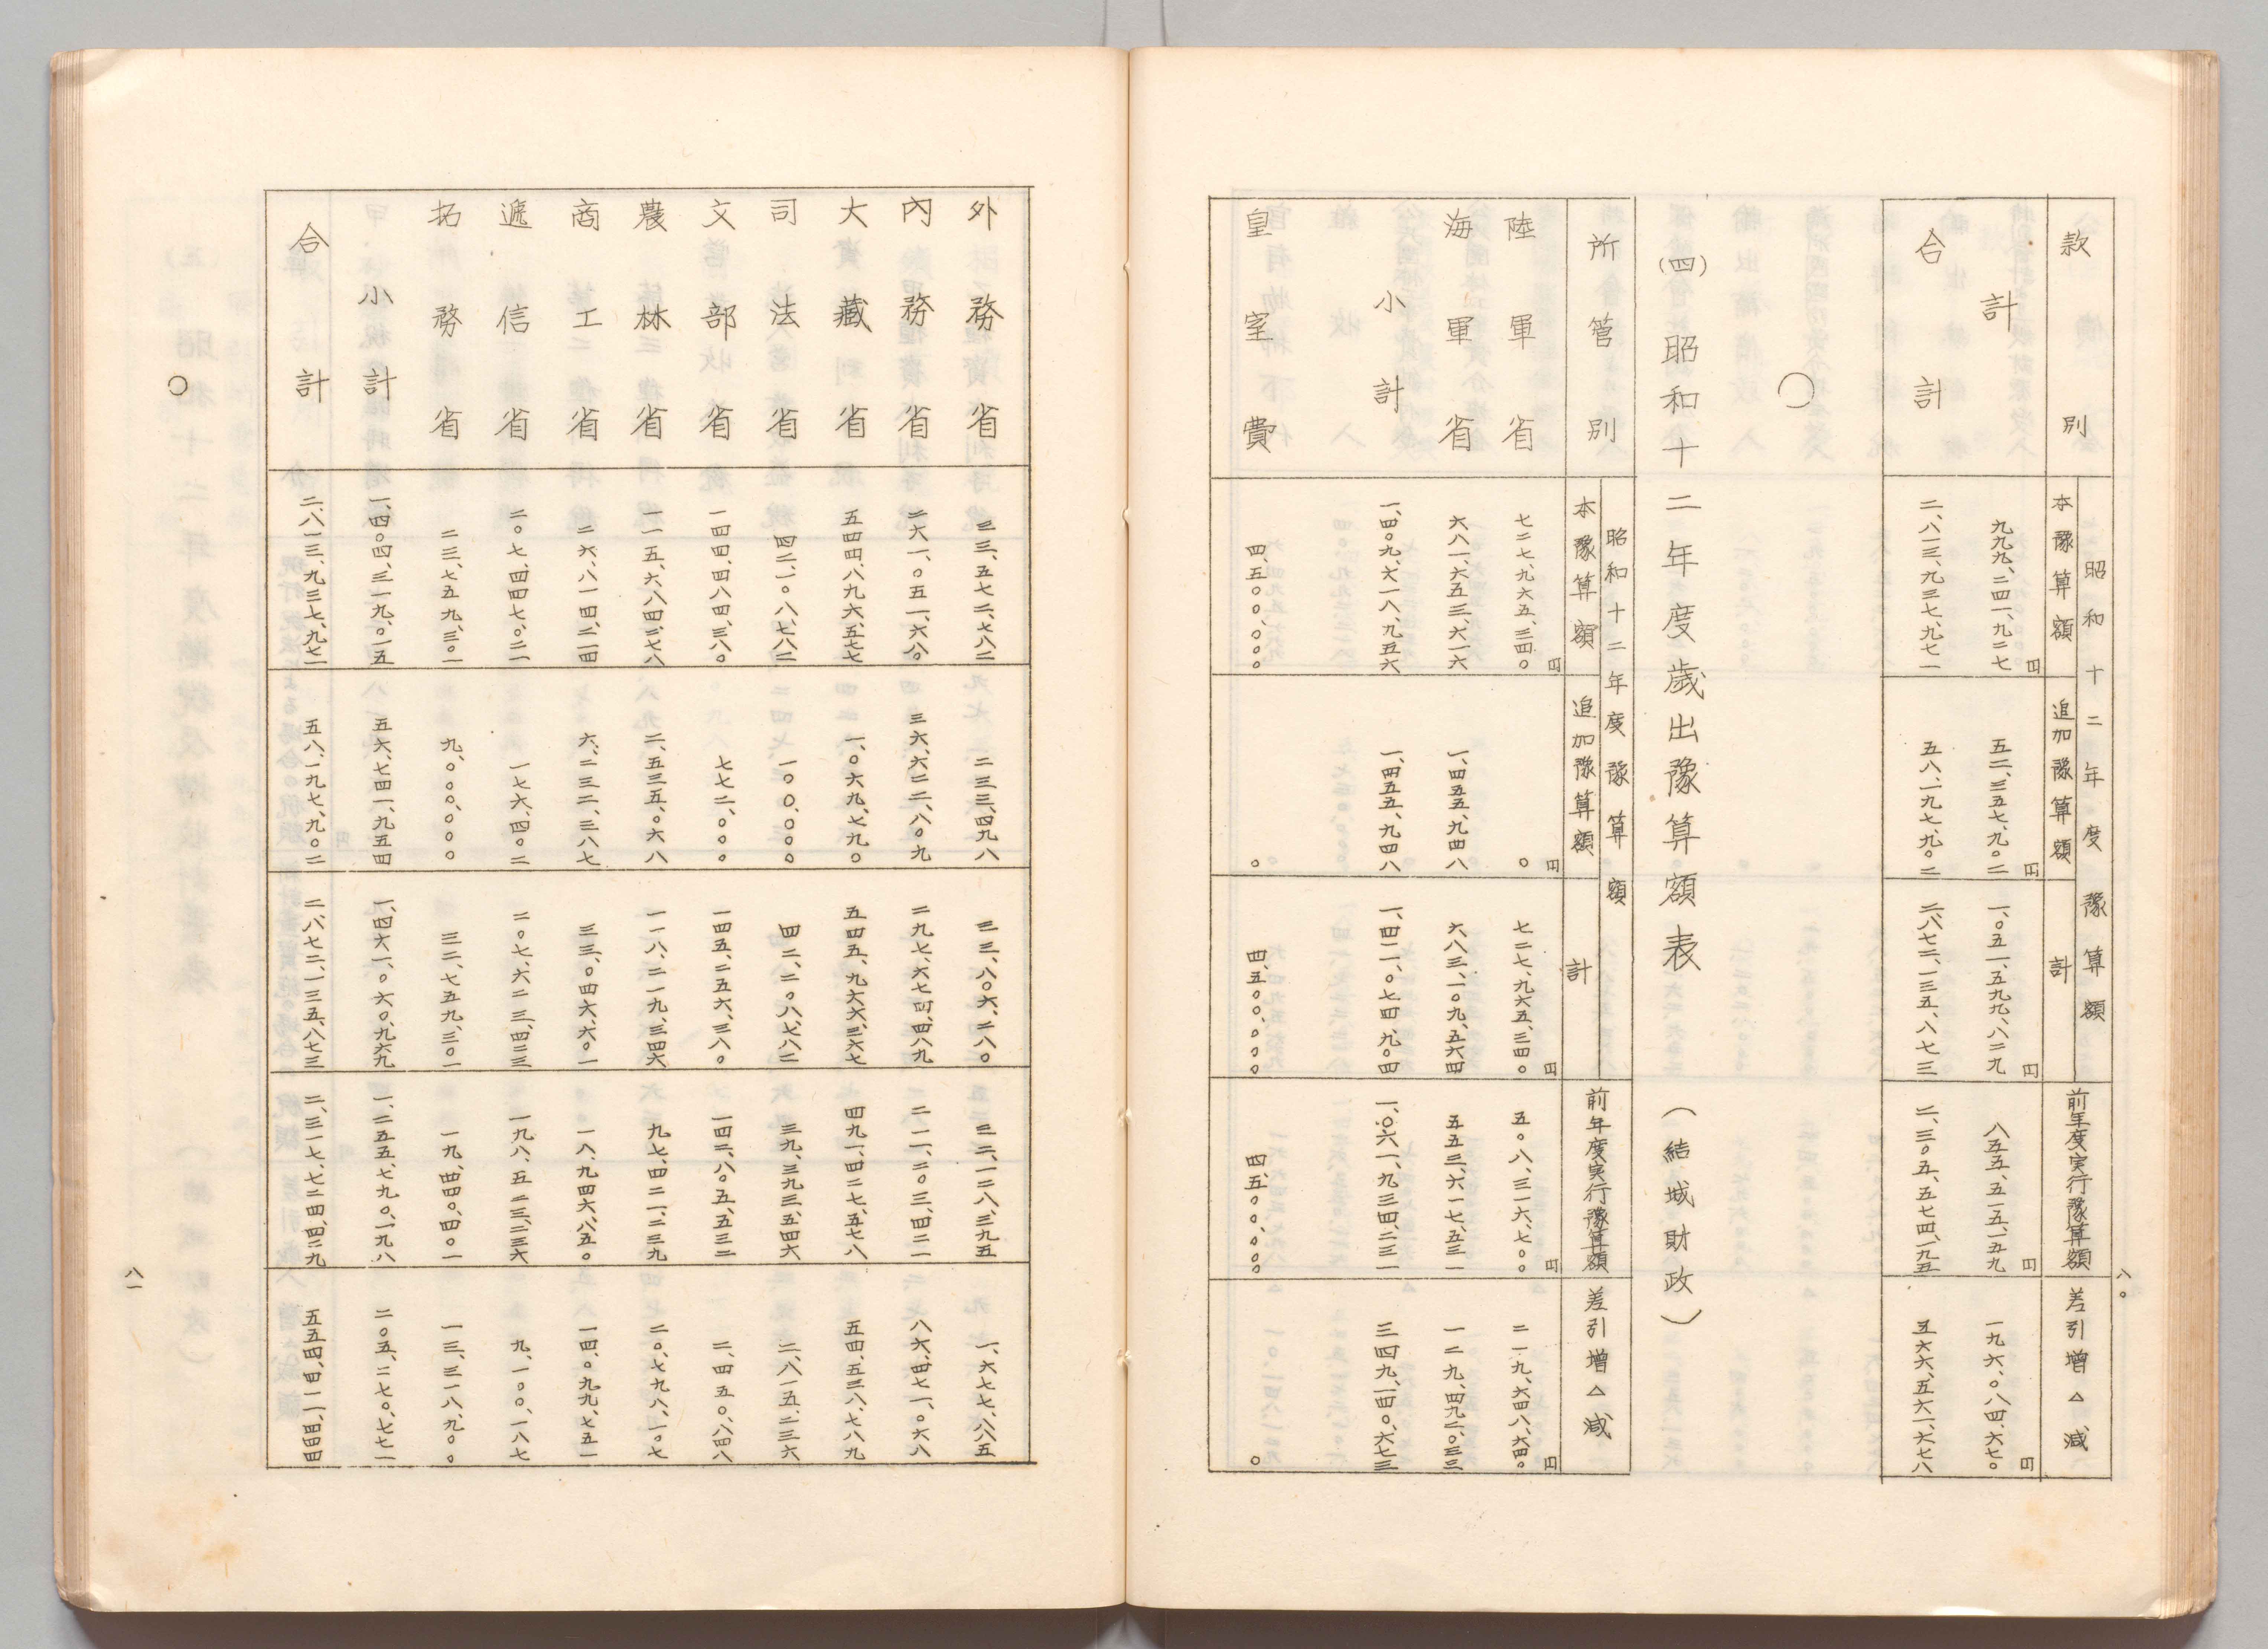 八〇
款別 昭和十二年度豫算額 前年度実行豫算額 差引増△減
本豫算額 追加豫算額 計
計 九九九、二四一、九二七円 五二、三五七、九〇二円 一、〇五一、五九九、八二九円 八五五、五一五、一五九円 一九六、〇八四、六七〇円
合計 二、八一三、九三七、九七一 五八、一九七、九〇二 二、八七二、一三五、八七三 二、三〇五、五七四、一九五 五六六、五六一、六七八
〇
(四) 昭和十二年度歳出豫算額表 (結城財政)
所管別 昭和十二年度豫算額 前年度実行豫算額 差引増△減
本豫算額 追加豫算額 計
陸軍省 七二七、九六五、三四〇円 〇円 七二七、九六五、三四〇円 五〇八、三一六、七〇〇円 二一九、六四八、六四〇円
海軍省 六八一、六五三、六一六 一、四五五、九四八 六八三、一〇九、五六四 五五三、六一七、五三一 一二九、四九二、〇三三
小計 一、四〇九、六一八、九五六 一、四五五、九四八 一、四一一、〇七四、九〇四 一、〇六一、九三四、二三一 三四九、一四〇、六七三
皇室費 四、五〇〇、〇〇〇 〇 四、五〇〇、〇〇〇 四、五〇〇、〇〇〇 〇
外務省 三三、五七二、七八二 二三三、四九八 三三、八〇六、二八〇 三二、一二八、三九五 一、六七七、八八五
内務省 二六一、〇五一、六八〇 三六、六二二、八〇九 二九七、六七四、四八九 二一一、二〇三、四二一 八六、四七一、〇六八
大藏省 五四四、八九六、五七七 一、〇六九、七九〇 五四五、九六六、三六七 四九一、四二七、五七八 五四、五三八、七八九
司法省 四二、一〇八、七八二 一〇〇、〇〇〇 四二、二〇八、七八二 三九、三九三、五四六 二、八一五、二三六
文部省 一四四、四八四、三八〇 七七二、〇〇〇 一四五、二五六、三八〇 一四二、八〇五、五三二 二、四五〇、八四八
農林省 一一五、六八四、二七八 二、五三五、〇六八 一一八、二一九、三四六 九七、四二一、二三九 二〇、七九八、一〇七
商工省 二六、八一四、二一四 六、二三二、三八七 三三、〇四六、六〇一 一八、九四六、八五〇 一四、〇九九、七五一
遞信省 二〇七、四四七、〇二一 一七六、四〇二 二〇七、六二三、四二三 一九八、五二三、二三六 九、一〇〇、一八七
拓務省 二三、七五九、三〇一 九、〇〇〇、〇〇〇 三二、七五九、三〇一 一九、四四〇、四〇一 一三、三一八、九〇〇
小計 一、四〇四、三一九、〇一五 五六、七四一、九五四 一、四六一、〇六〇、九六九 一、二五五、七九〇、一九八 二〇五、二七〇、七七一
合計 二、八一三、九三七、九七一 五八、一九七、九〇二 二、八七二、一三五、八七三 二、三一七、七二四、四二九 五五四、四一一、四四四
〇
八一